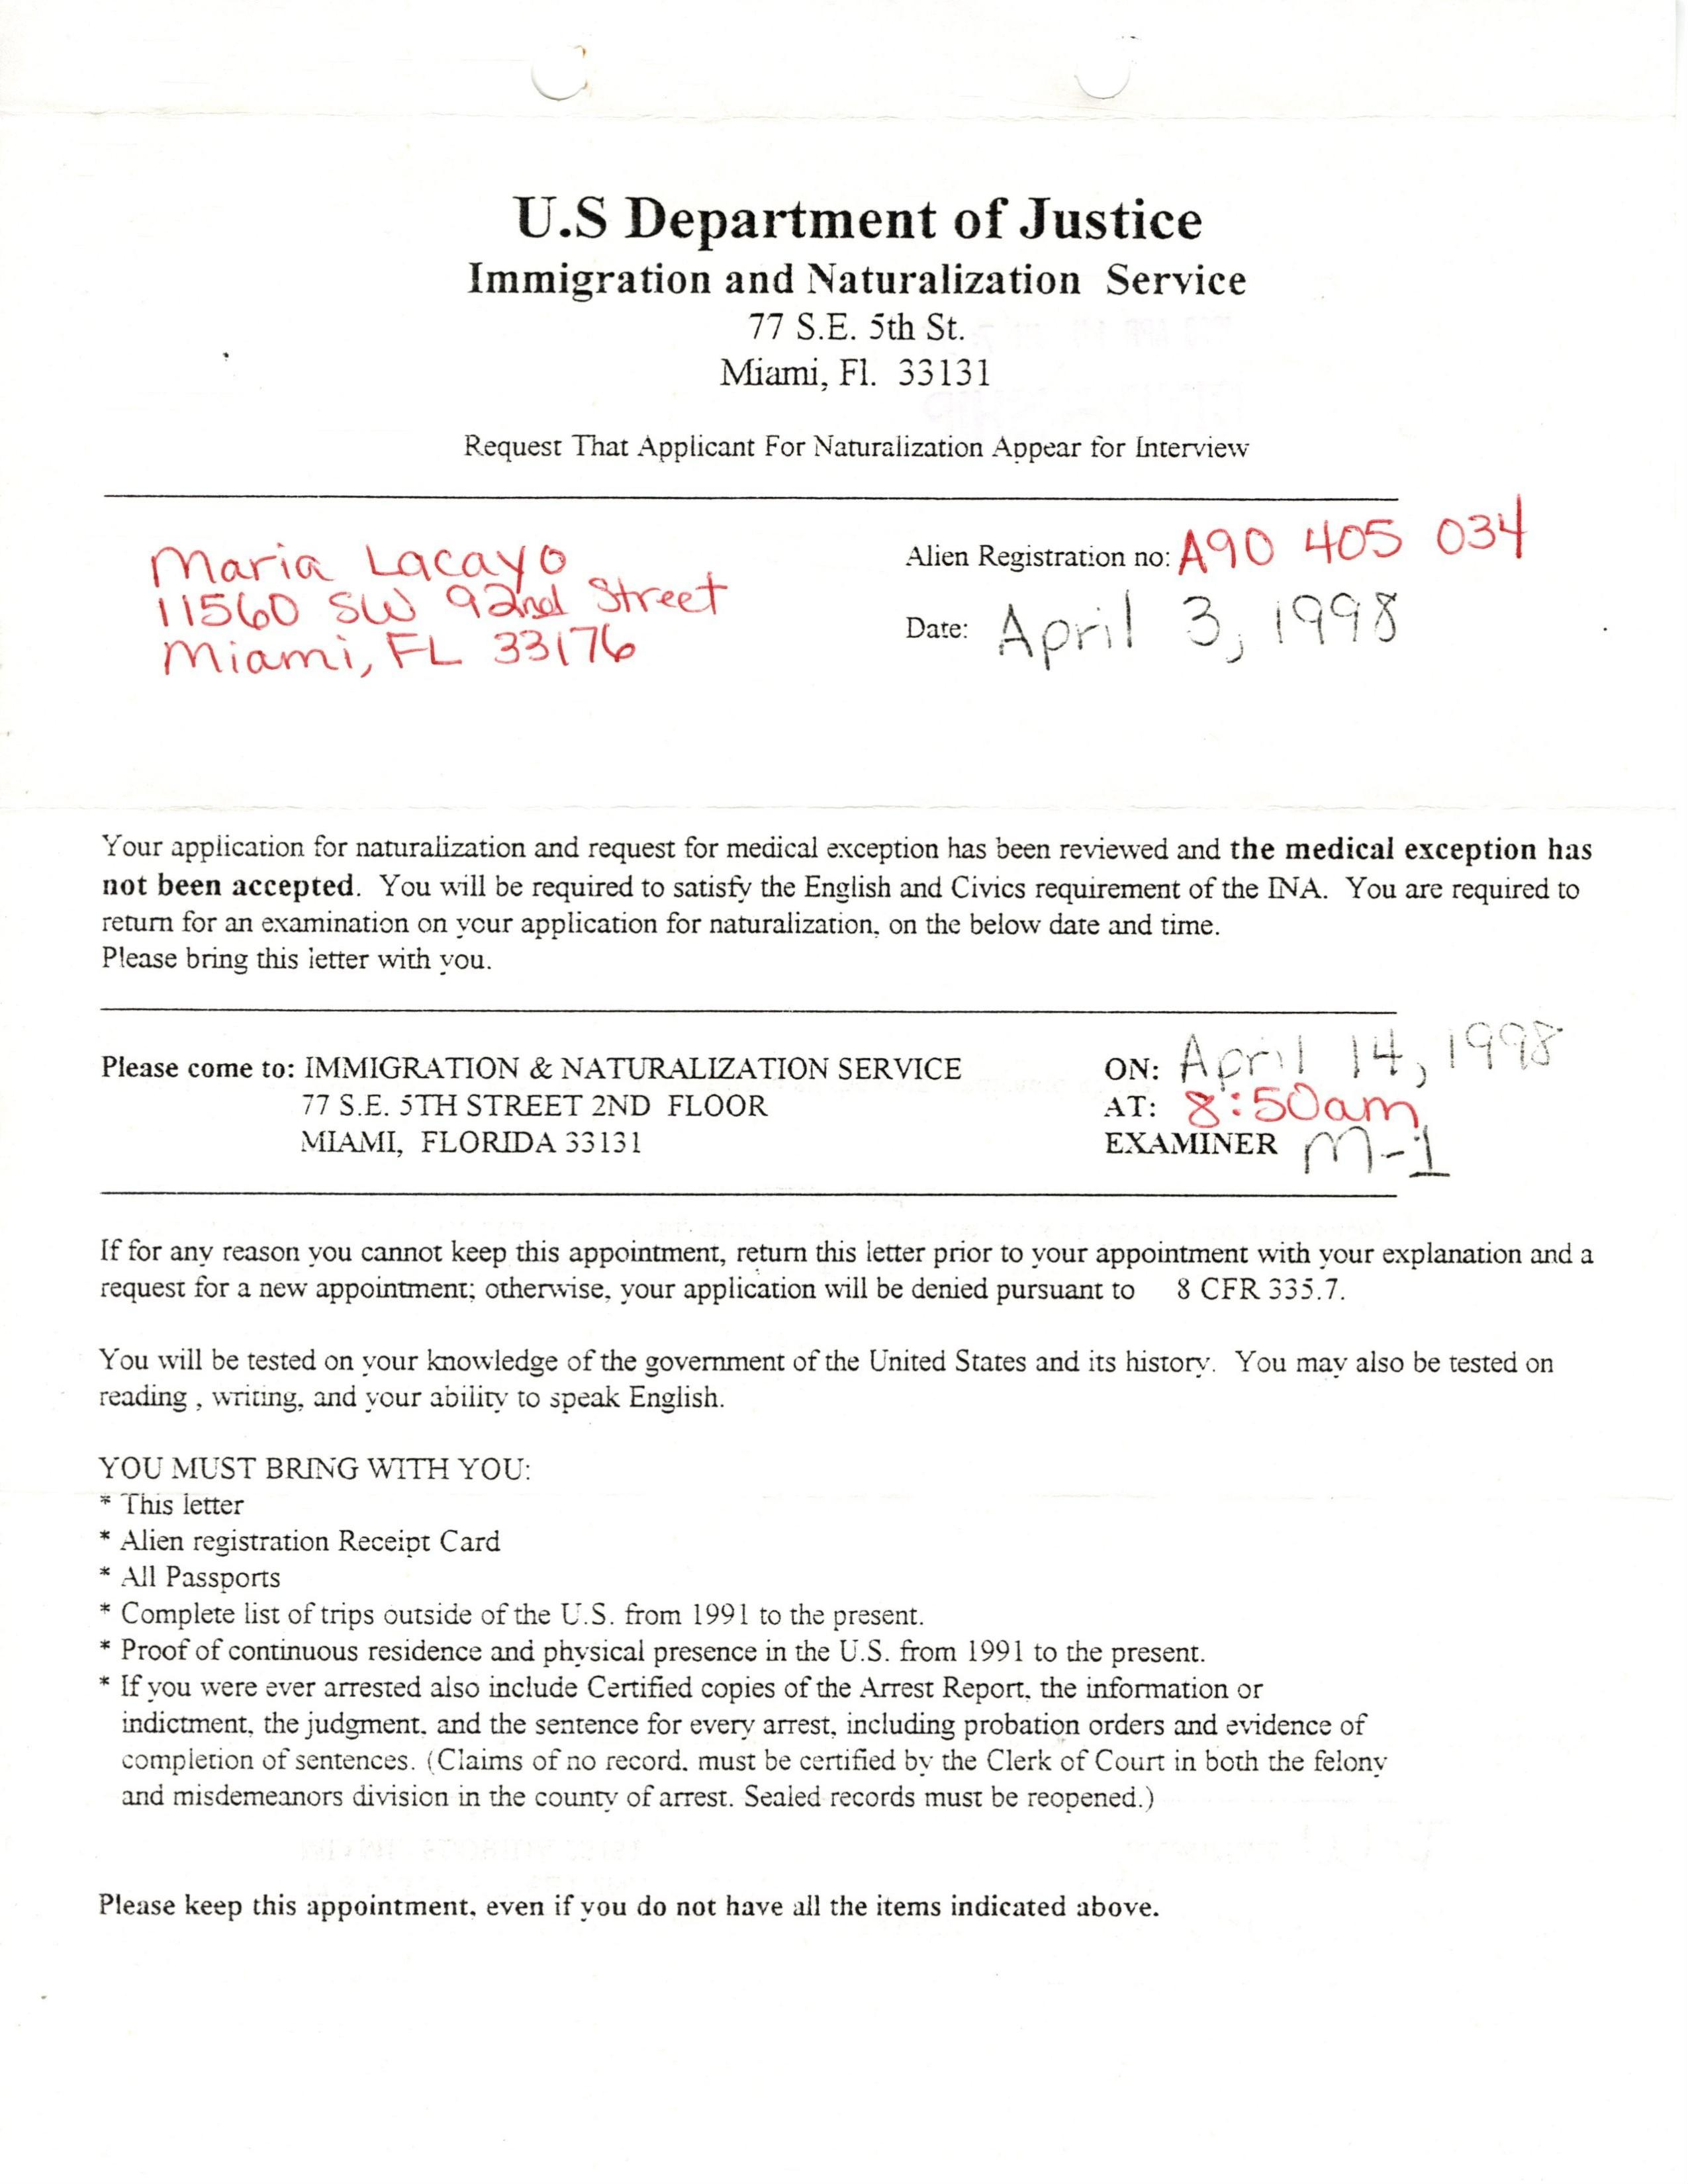 U.S Department of Justice
Immigration and Naturalization Service
77 S.E. 5th St.
Miami, Fl. 33131
Request That Applicant For Naturalization Appear for Interview
Maria Lacayo
11560 SW 92nd Street
Miami, FL 33176
Alien Registration no: A90 405 034
Date: April 3, 1998
Your application for naturalization and request for medical exception has been reviewed and the medical exception has
not been accepted. You will be required to satisfy the English and Civics requirement of the INA. You are required to
return for an examination on your application for naturalization, on the below date and time.
Please bring this letter with you.
Please come to: IMMIGRATION & NATURALIZATION SERVICE
77 S.E. 5TH STREET 2ND FLOOR
MIAMI, FLORIDA 33131
ON: April 14, 1998
AT: 8:50am
EXAMINER M-1
If for any reason you cannot keep this appointment, return this letter prior to your appointment with your explanation and a
request for a new appointment; otherwise, your application will be denied pursuant to 8 CFR 335.7.
You will be tested on your knowledge of the government of the United States and its history. You may also be tested on
reading , writing, and your ability to speak English.
YOU MUST BRING WITH YOU:
* This letter
* Alien registration Receipt Card
* All Passports
* Complete list of trips outside of the U.S. from 1991 to the present.
* Proof of continuous residence and physical presence in the U.S. from 1991 to the present.
* If you were ever arrested also include Certified copies of the Arrest Report, the information or
indictment, the judgment, and the sentence for every arrest, including probation orders and evidence of
completion of sentences. (Claims of no record, must be certified by the Clerk of Court in both the felony
and misdemeanors division in the county of arrest. Sealed records must be reopened.)
Please keep this appointment, even if you do not have all the items indicated above.